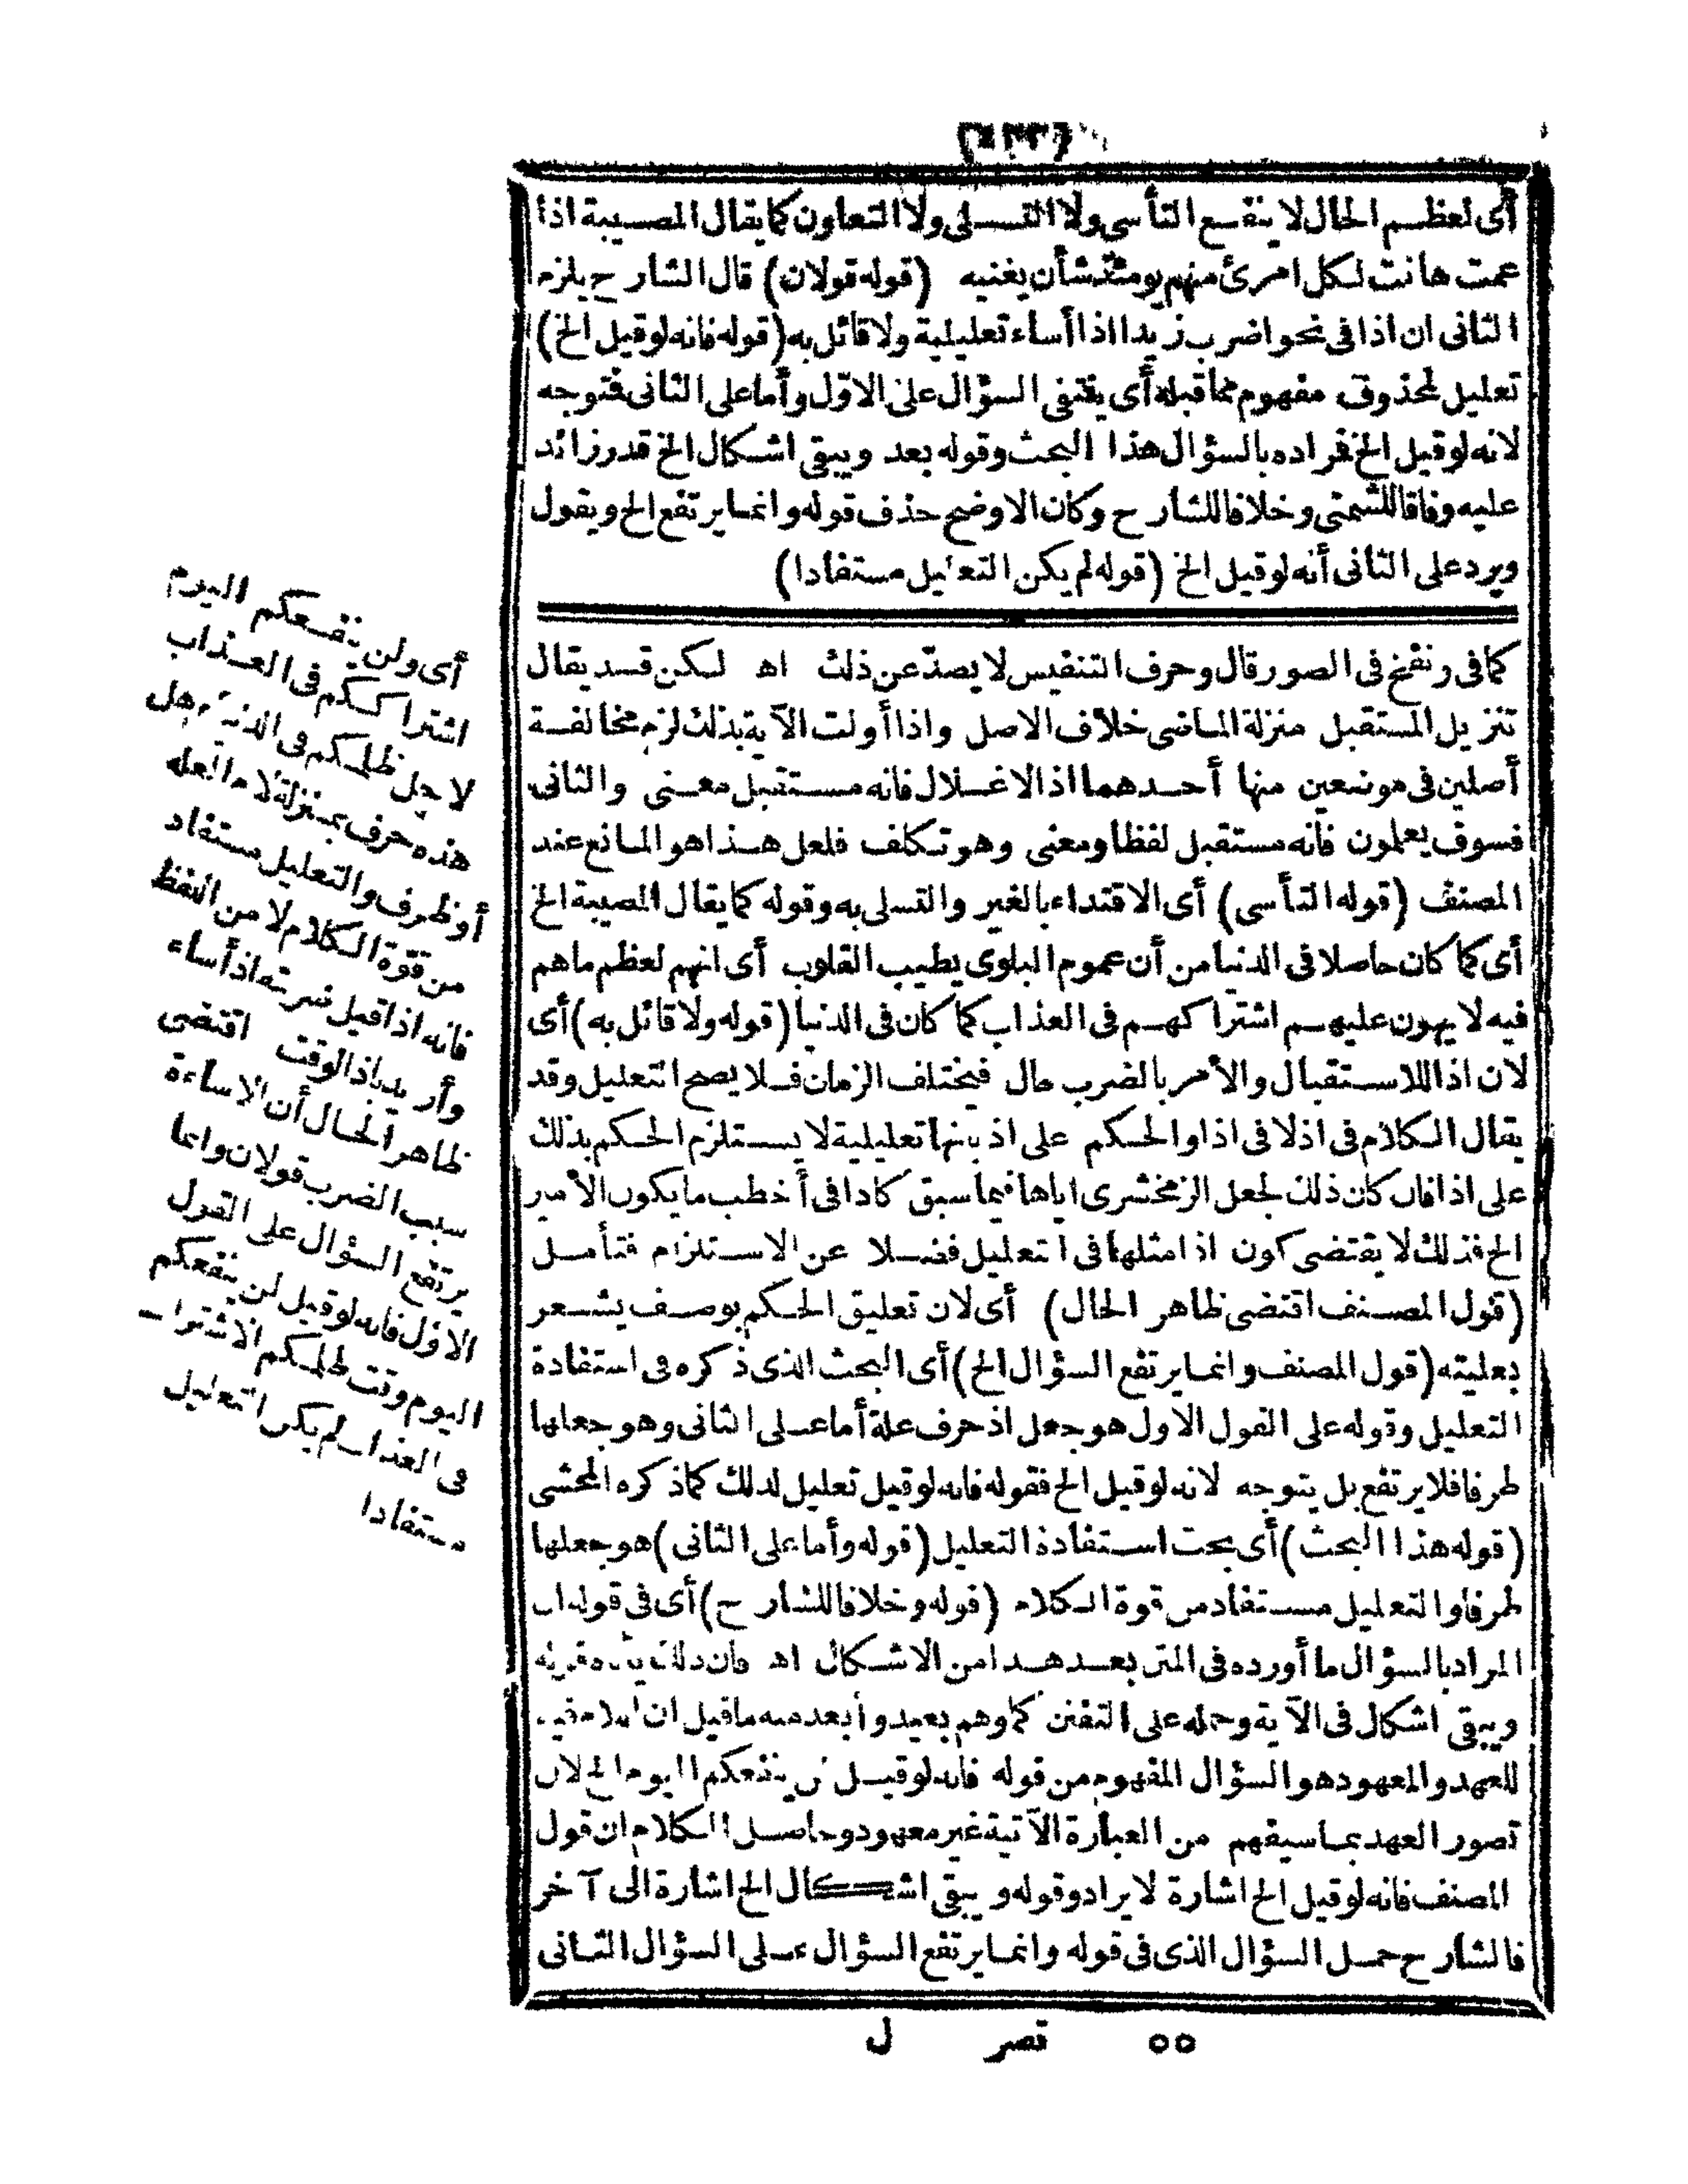 أى لعظم الحال لا ينفع التأسى ولا التسلى ولا التعاون كما يقال المصيبة اذا
عمت هانت لكل امرئ منهم يومئذ شأن يغنيه (قوله قولان) قال الشارح يلزم
الثانى ان اذا فى نحو اضرب زيدا اذا أساء تعليلية ولا قائل به (قوله فانه لو قيل الخ)
تعليل لمحذوف مفهوم مما قبله أى ينتفى السؤال على الاوّل وأما على الثانى فتوجه
لانه لو قيل الخ فمراده بالسؤال هذا البحث وقوله بعد ويبقى اشكال الخ قدر زائد
عليه وفاقا للشمنى وخلافا للشارح وكان الاوضح حذف قوله وانما يرتفع الخ ويقول
ويرد على الثانى أنه لو قيل الخ (قوله لم يكن التعليل مستفادا)
كما فى ونفخ فى الصور قال وحرف التنفيس لا يصدّ عن ذلك اه لكن قد يقال
تنزيل المستقبل منزلة الماضى خلاف الاصل واذا أولت الآية بذلك لزم مخالفة
أصلين فى موضعين منها أحدهما اذ الاغلال فانه مستقبل معنى والثانى
فسوف يعلمون فانه مستقبل لفظا ومعنى وهو تكلف فلعل هذا هو المانع عند
المصنف (قوله التأسى) أى الاقتداء بالغير والتسلى به وقوله كما يقال المصيبة الخ
أى كما كان حاصلا فى الدنيا من أن عموم البلوى يطيب القلوب أى انهم لعظم ما هم
فيه لا يهون عليهم اشتراكهم فى العذاب كما كان فى الدنيا (قوله ولا قائل به) أى
لان اذا للاستقبال والأمر بالضرب حال فيختلف الزمان فلا يصح التعليل وقد
يقال الكلام فى اذ لا فى اذا والحكم على اذ بانها تعليلية لا يستلزم الحكم بذلك
على اذا فان كان ذلك لجعل الزمخشرى اياها فيما سبق كاذا فى أخطب ما يكون الأمير
الخ فذلك لا يقتضى كون اذا مثلها فى التعليل فضلا عن الاستلزام فتأمل
(قول المصنف اقتضى ظاهر الحال) أى لان تعليق الحكم بوصف يشعر
بعليته (قول المصنف وانما يرتفع السؤال الخ) أى البحث الذى ذكره فى استفادة
التعليل وقوله على القول الاول هو جعل اذ حرف علة أما على الثانى وهو جعلها
ظرفا فلا يرتفع بل يتوجه لانه لو قيل الخ فقوله فانه لو قيل تعليل لذلك كما ذكره المحشى
(قوله هذا البحث) أى بحث استفادة التعليل (قوله وأما على الثانى) هو جعلها
ظرفا والتعليل مستفاد من قوة الكلام (قوله وخلافا للشارح) أى فى قوله ان
المراد بالسؤال ما أورده فى المتن بعد هذا من الاشكال اه فان ذلك قرينه
ويبقى اشكال فى الآية وحمله على التفنن كما وهم بعيد وأبعد منه ما قيل ان اللام فيه
للعهد والمعهود هو السؤال المفهوم من قوله فانه لو قيل لن ينفعكم اليوم الخ لان
تصور العهد بما سيفهم من العبارة الآتية غير معهود وحاصل الكلام ان قول
المصنف فانه لو قيل الخ اشارة لايراد وقوله ويبقى اشكال الخ اشارة الى آخر
فالشارح حمل السؤال الذى فى قوله وانما يرتفع السؤال على السؤال الثانى
٥٥ قصر ل
أى ولن ينفعكم اليوم
اشتراككم فى العذاب
لاجل ظلمكم فى الدنيا وهل
هذه حرف بمنزلة لام العلة
أو ظرف والتعليل مستفاد
من قوّة الكلام لا من اللفظ
فانه اذا قيل ضربته اذ أساء
وأريد باذ الوقت اقتضى
ظاهر الحال أن الاساءة
سبب الضرب قولان وانما
يرتفع السؤال على القول
الاوّل فانه لو قيل لن ينفعكم
اليوم وقت ظلمكم الاشتراك
فى العذاب لم يكن التعليل
مستفادا